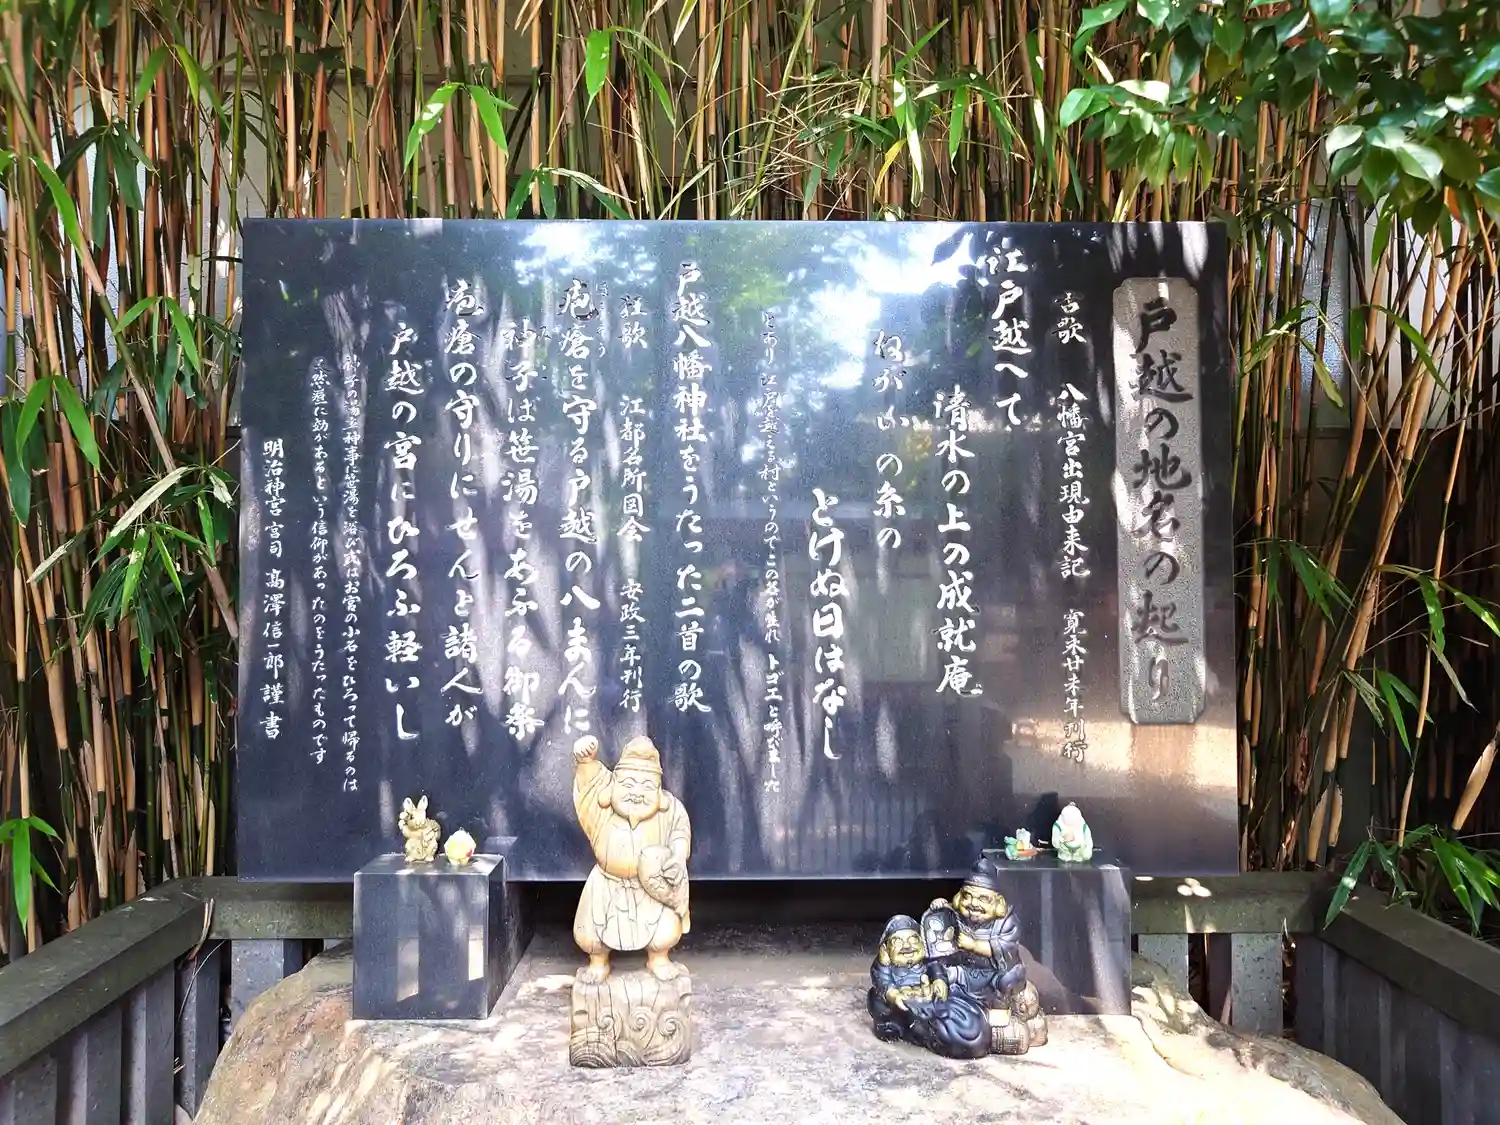 戸越の地名の起り
古歌 八幡宮出現由来記 寛永廿未年刊行
江戸越へて
清水の上の成就庵
ねがいの糸の
とけぬ日はなし
とあり 江戸を越える村というのでこの名が生れ トゴエと呼びました
戸越八幡神社をうたった二首の歌
狂歌 江都名所図会 安政三年刊行
疱瘡を守る戸越の八まんに
ほうそう
神子は笹湯をあふる御楽
疱瘡の守りにせんと諸人が
戸越の宮にひろふ軽いし
神子の湯立神事に笹湯を浴び或はお宮の小石をひろって帰るのは
天然痘に効があるという信仰があったのをうたったものです
明治神宮宮司 高澤信一郎謹書